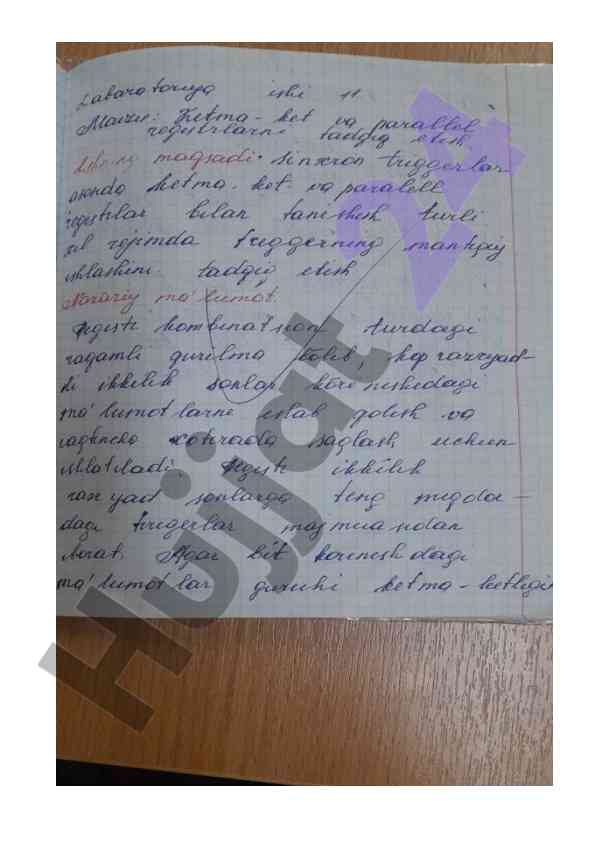 Labaratoriya ishi 11
Mavzu: Ketma-ket va parallel
registrlarni tadqiq etish
Ishning maqsadi. Sinxron triggerlar
asosida ketma-ket va paralell
registrlar bilan tanishish turli
xil rejimda triggerning mantiqiy
ishlashini tadqiq etish
Nazariy ma'lumot.
kombinatsion turdagi
raqamli qurilma bolib, kop razryad-
li ikkilik sonlar korinishidagi
ma'lumotlarni eslab qolish va
xotirada saqlash uchun
ishlatiladi. ikkilik
razryad sonlarga teng miqdor-
dagi trigerlar majmuasidan
iborat. Agar bit korinishdagi
ma'lumotlar guruhi ketma-ketligin
Hujjat 24